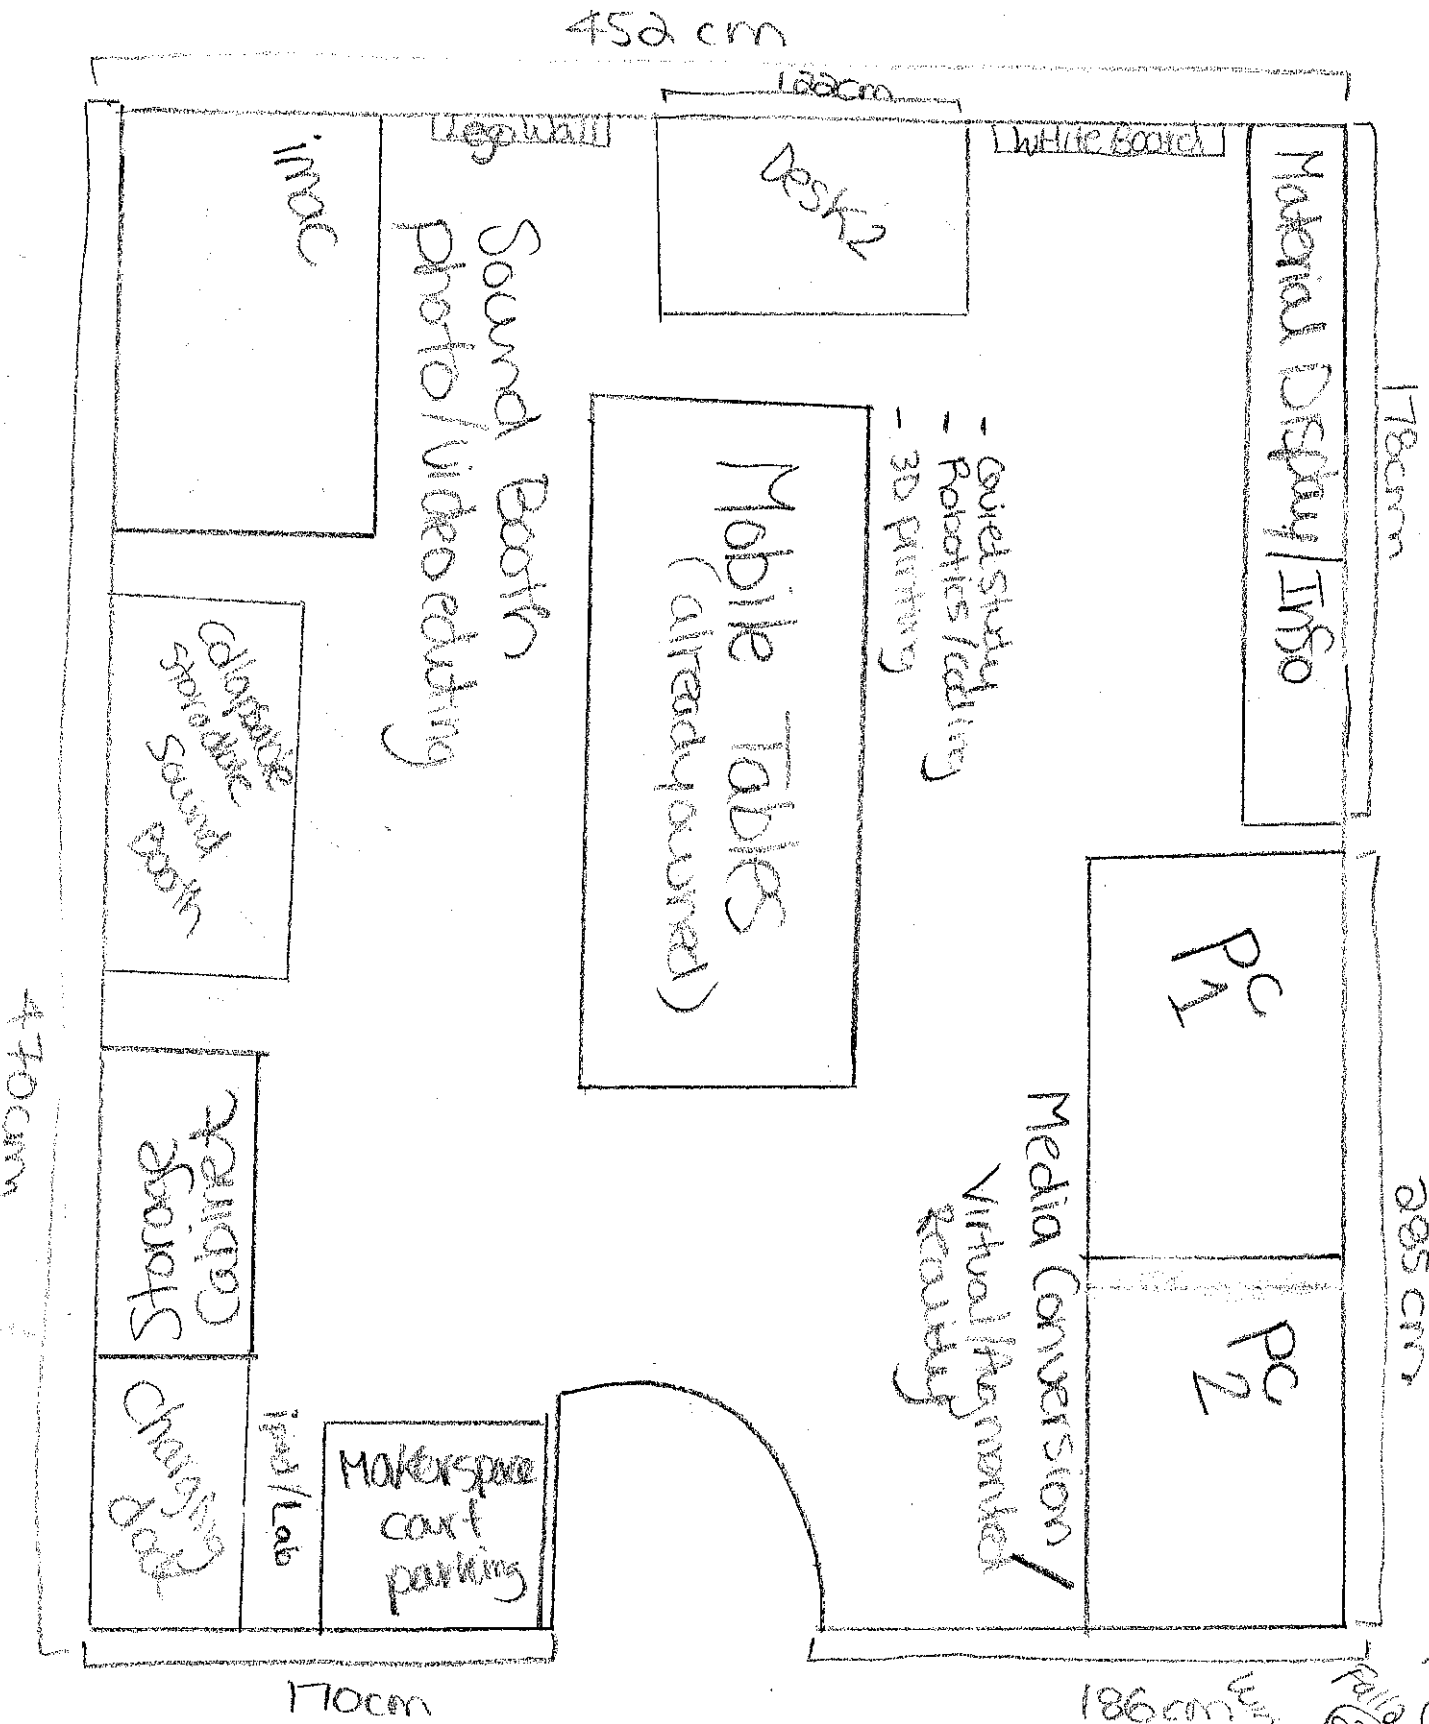 452 cm
122cm
Lego Wall
White Board
imac
Desk 2
Material Display/Info
178cm
Sound Booth
photo/video editing
- Quiet study
- Robotics/coding
- 3D printing
Mobile Tables
(already owned)
storable
Sound
Booth
PC
1
PC
2
285 cm
Media Conversion/
Reality
470cm
Storage
Cabinet
Charging
ipad/Lab
Makerspace
court
parking
170cm
186cm